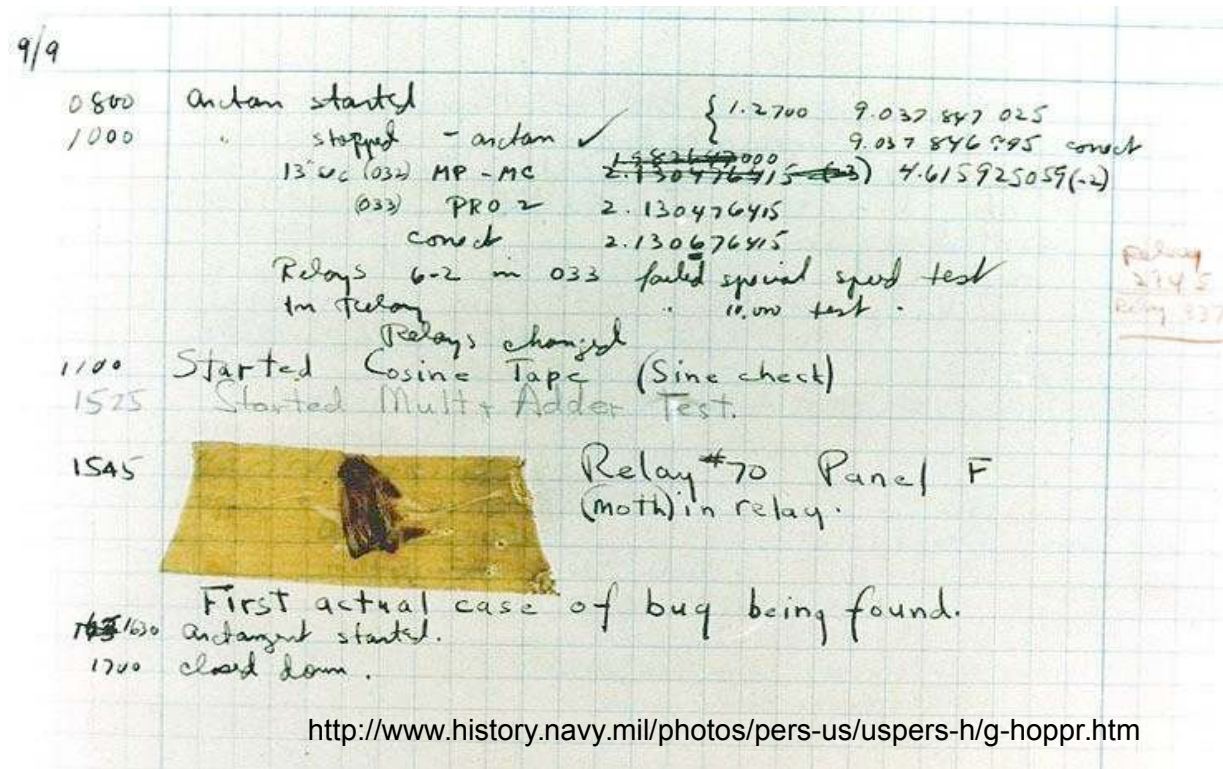 9/9
0800 arctan started { 1.2700 9.037 847 025
1000 " stopped - arctan ✓ 9.037 846 995 correct
13"uc (032) MP - MC 2.130476415 (-3) 4.615925059(-2)
(033) PRO 2 2.130476415
correct 2.130676415
Relays 6-2 in 033 failed special speed test
In Relay " 10.000 test .
Relays changed
1100 Started Cosine Tape (Sine check)
1525 Started Mult + Adder Test.
1545 Relay #70 Panel F
(moth) in relay.
First actual case of bug being found.
1630 arctangent started.
1700 closed down.
Relay
2145
Relay 337
http://www.history.navy.mil/photos/pers-us/uspers-h/g-hoppr.htm